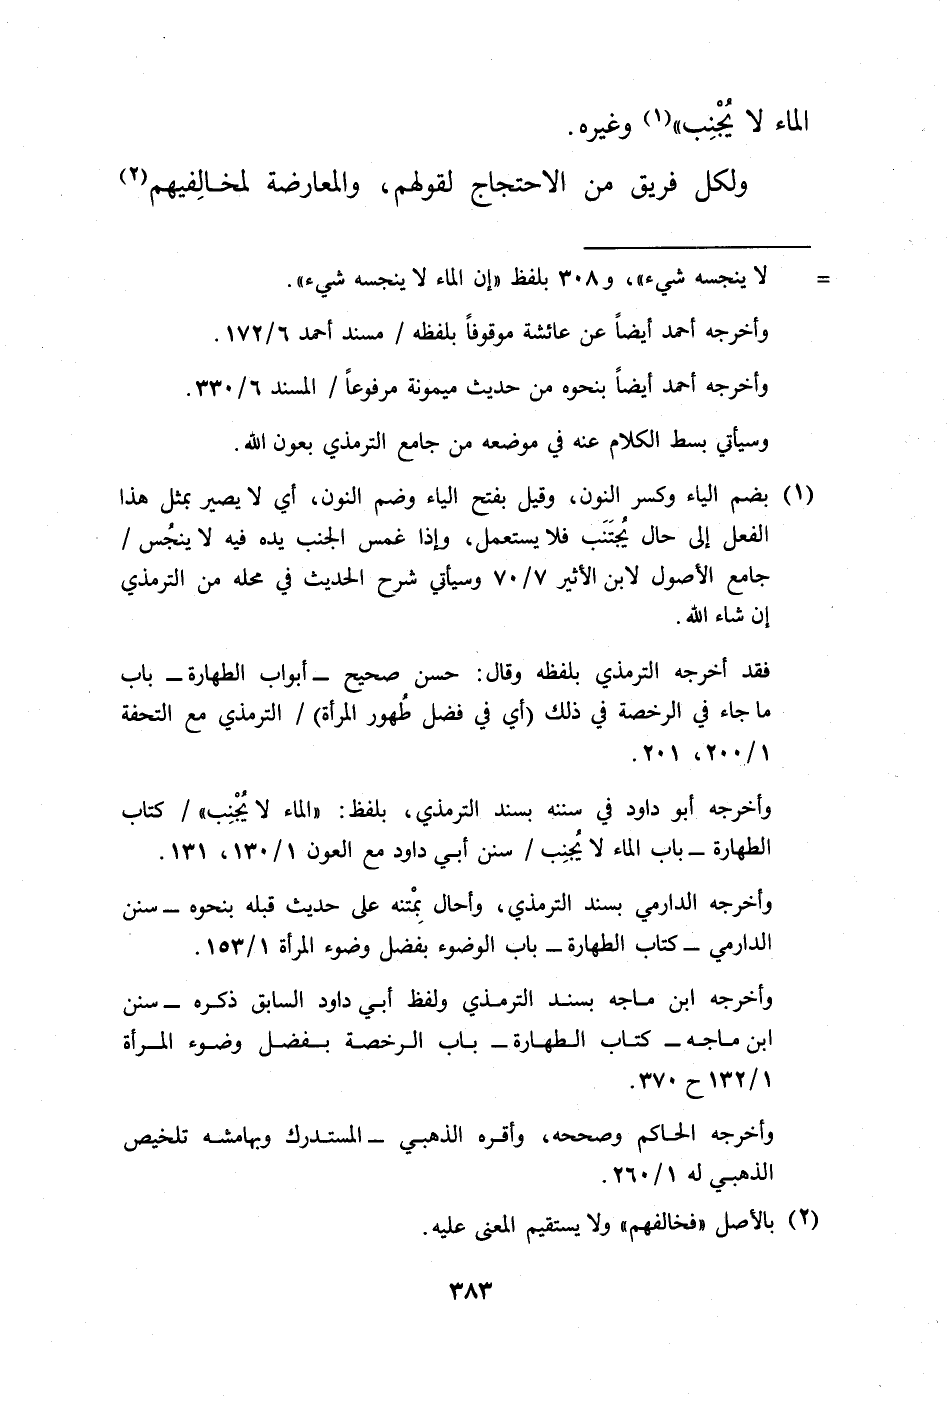 الماء لا يُجْنِب»(١) وغيره.
ولكل فريق من الاحتجاج لقولهم، والمعارضة لمخـالِفيهم(٢)
= لا ينجسه شيء»، و٣٠٨ بلفظ «إن الماء لا ينجسه شيء».
وأخرجه أحمد أيضاً عن عائشة موقوفاً بلفظه / مسند أحمد ١٧٢/٦.
وأخرجه أحمد أيضاً بنحوه من حديث ميمونة مرفوعاً / المسند ٣٣٠/٦.
وسيأتي بسط الكلام عنه في موضعه من جامع الترمذي بعون الله.
(١) بضم الياء وكسر النون، وقيل بفتح الياء وضم النون، أي لا يصير بمثل هذا
الفعل إلى حال يُجتَنَب فلا يستعمل، وإذا غمس الجنب يده فيه لا ينجُس /
جامع الأصول لابن الأثير ٧٠/٧ وسيأتي شرح الحديث في محله من الترمذي
إن شاء الله.
فقد أخرجه الترمذي بلفظه وقال: حسن صحيح ــ أبواب الطهارة ــ باب
ما جاء في الرخصة في ذلك (أي في فضل طُهور المرأة) / الترمذي مع التحفة
٢٠٠/١، ٢٠١.
وأخرجه أبو داود في سننه بسند الترمذي، بلفظ: «الماء لا يُجْنِب» / كتاب
الطهارة ــ باب الماء لا يُجنِب / سنن أبـي داود مع العون ١٣٠/١، ١٣١.
وأخرجه الدارمي بسند الترمذي، وأحال بمْتنه على حديث قبله بنحوه ــ سنن
الدارمي ــ كتاب الطهارة ــ باب الوضوء بفضل وضوء المرأة ١٥٣/١.
وأخرجه ابن مـاجه بسنـد الترمـذي ولفظ أبـي داود السابق ذكـره ــ سنن
ابن مـاجـه ــ كتـاب الـطهـارة ــ بـاب الـرخصـة بـفـضـل وضـوء المـرأة
١٣٢/١ ح ٣٧٠.
وأخرجه الحـاكم وصححه، وأقـره الذهبـي ــ المستـدرك وبهامشـه تلخيص
الذهبـي له ٢٦٠/١.
(٢) بالأصل «فخالفهم» ولا يستقيم المعنى عليه.
٣٨٣